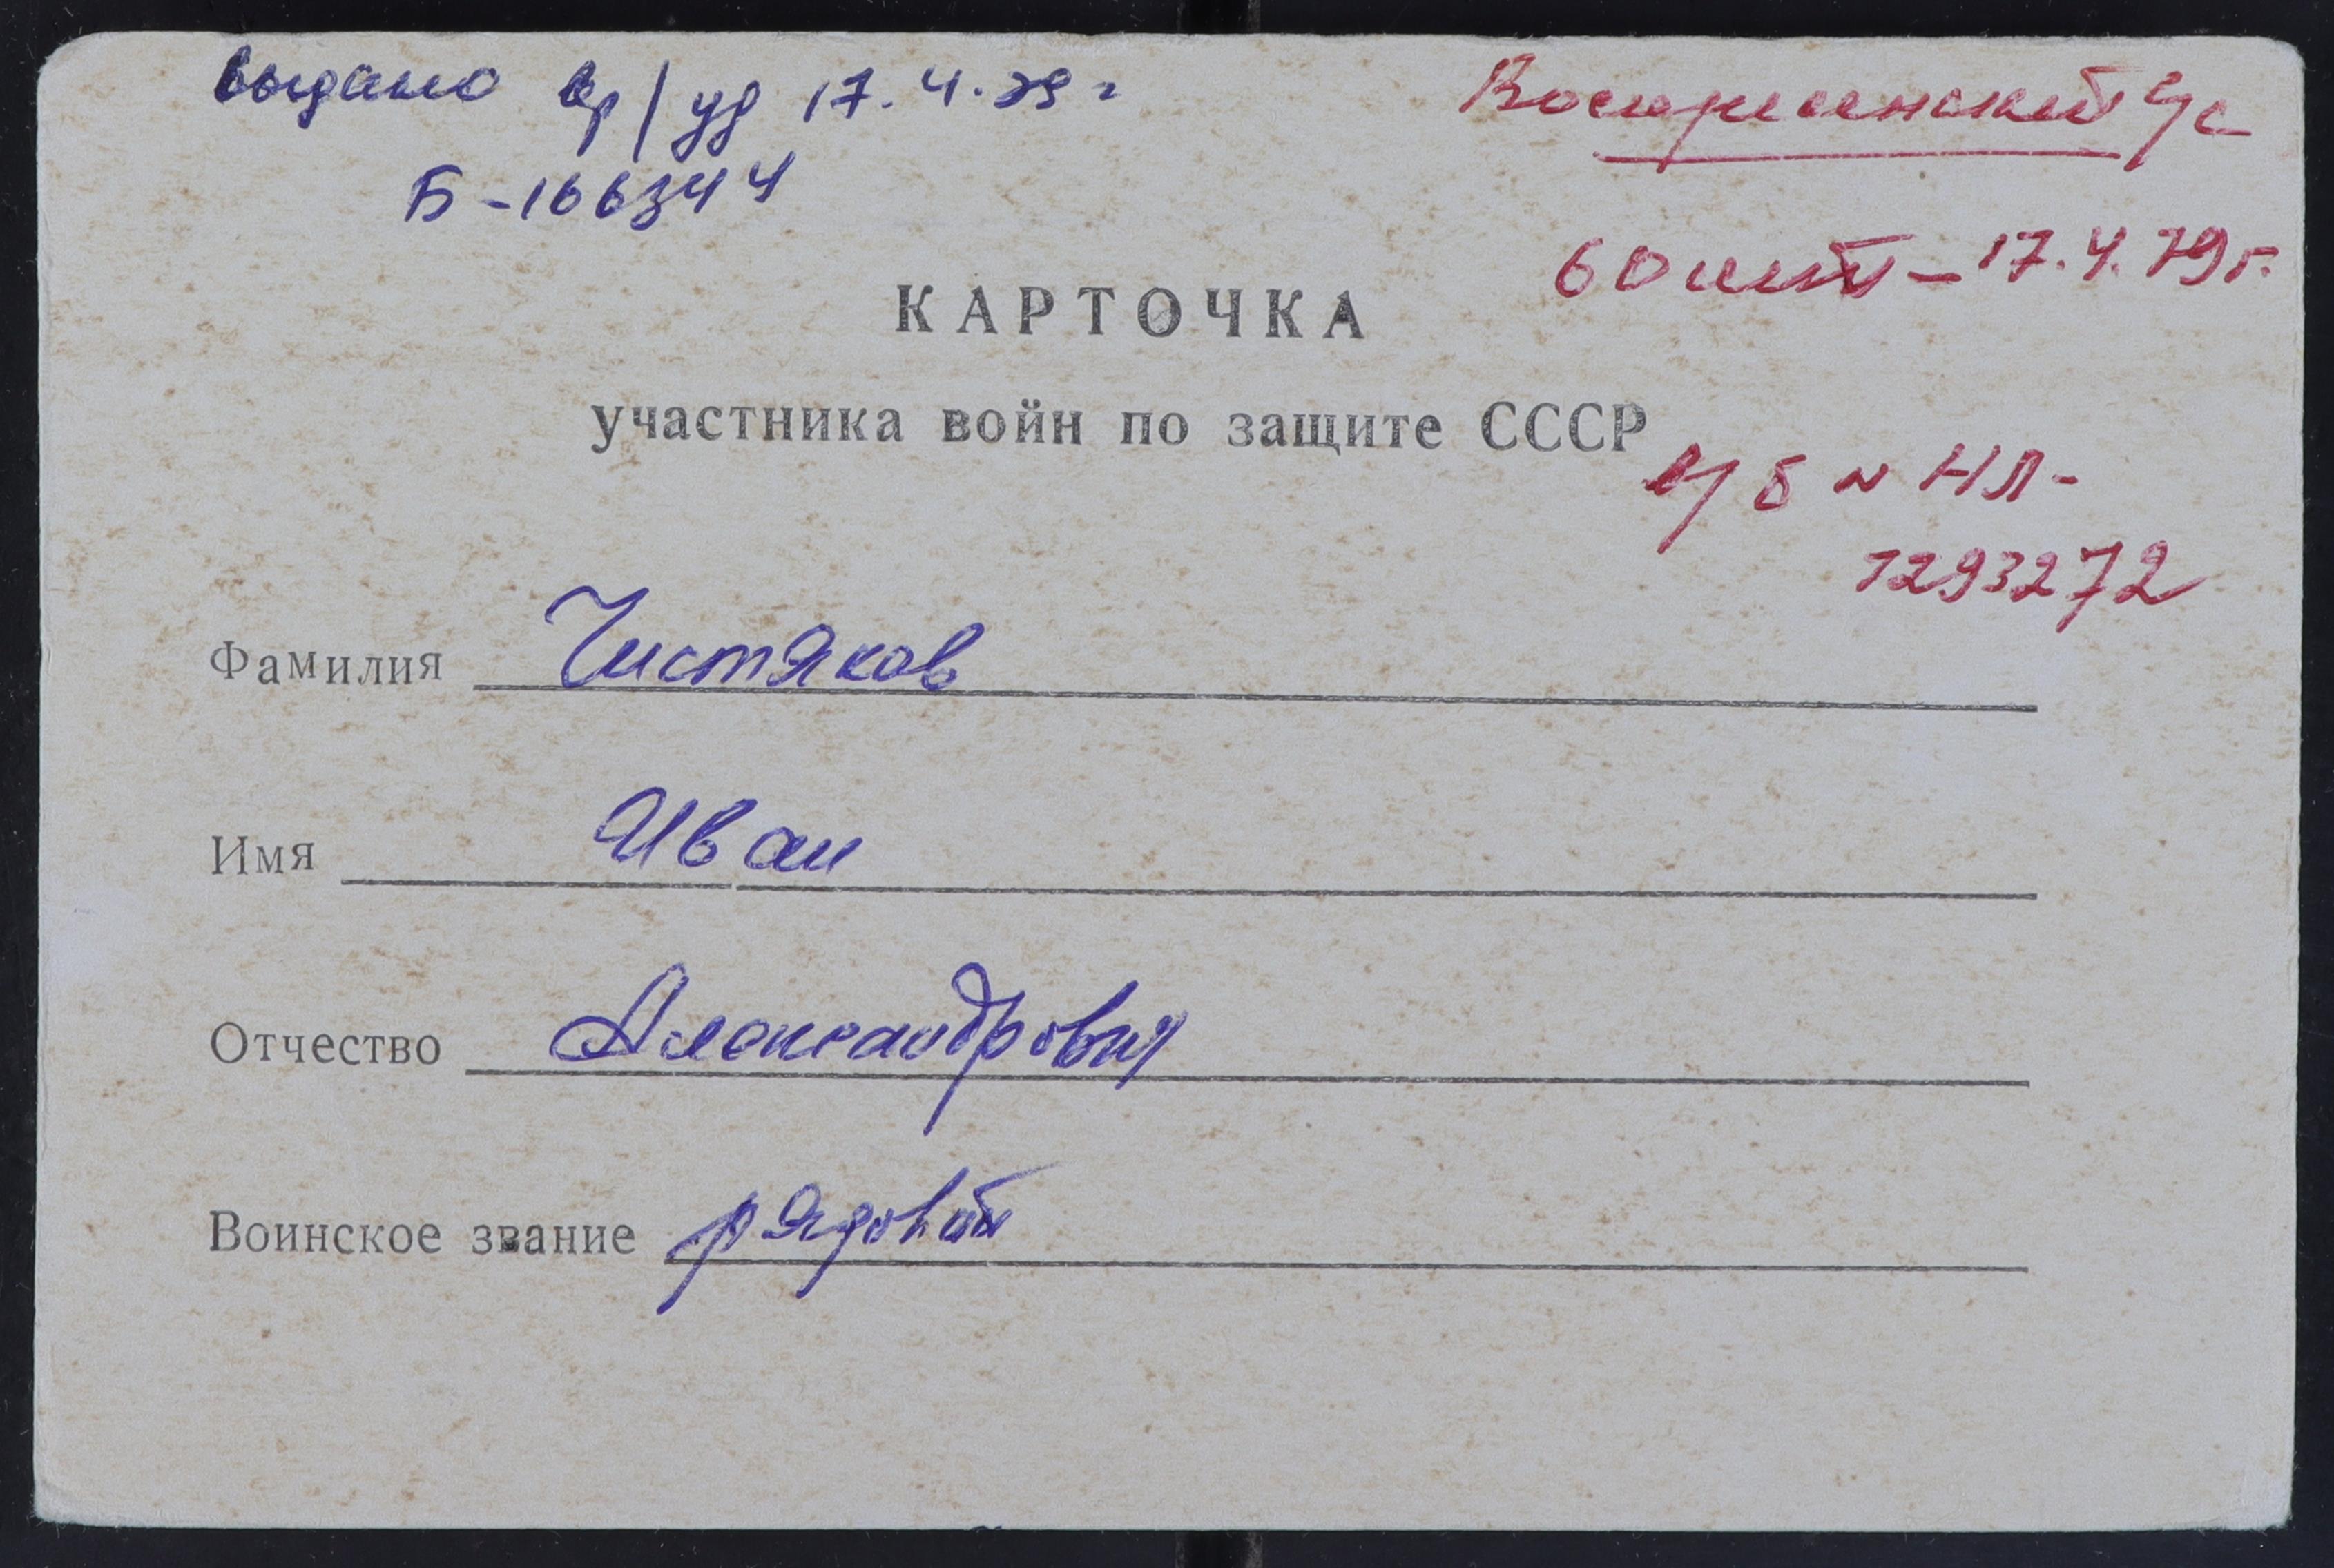 выдано вр/уд 17.4.79 г
Б-166344
Воскресенский с/с
60 лет - 17.4.79г.
КАРТОЧКА
участника войн по защите СССР
в/б № НЛ-
1293272
Фамилия Чистяков
Имя Иван
Отчество Александрович
Воинское звание рядовой